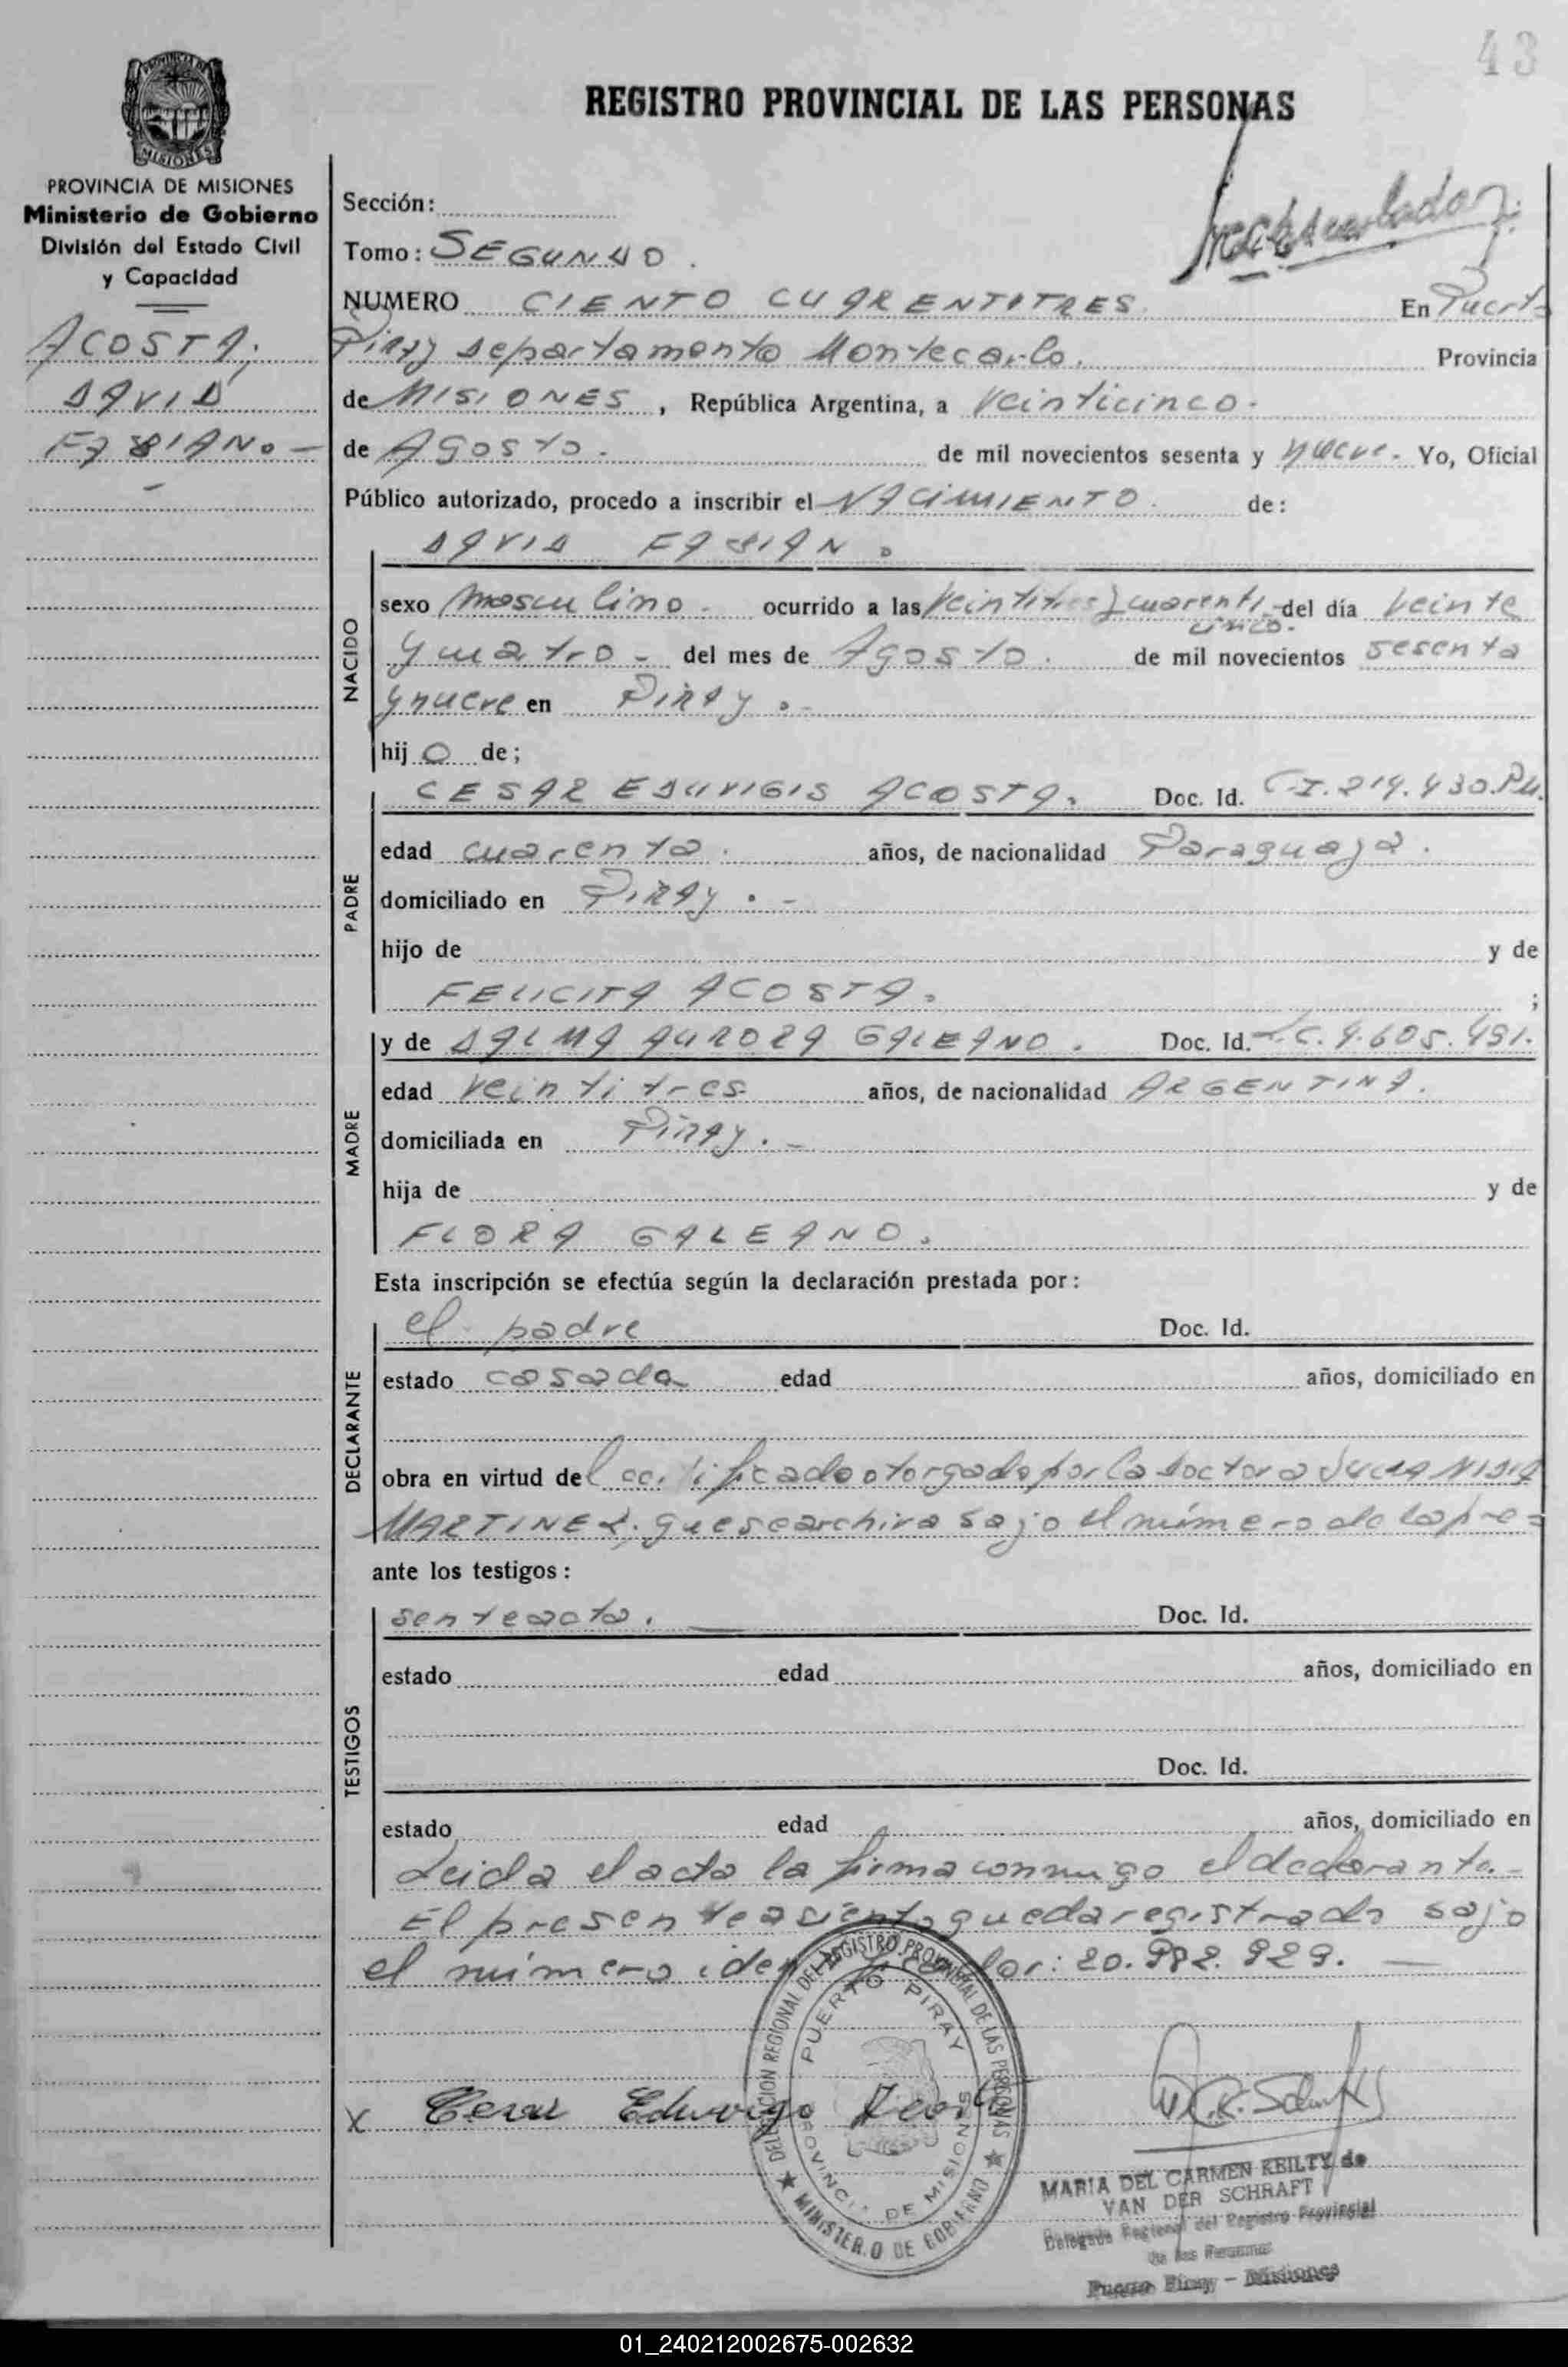 43
REGISTRO PROVINCIAL DE LAS PERSONAS
PROVINCIA DE
MISIONES
PROVINCIA DE MISIONES
Ministerio de Gobierno
División del Estado Civil
y Capacidad
ACOSTA,
DAVID
FABIAN o -
Sección:
Tomo: SEGUNDO.
NUMERO CIENTO CUARENTITRES. En Puerto
Piray departamento Montecarlo. Provincia
de MISIONES, República Argentina, a veinticinco.
de Agosto. de mil novecientos sesenta y nueve. Yo, Oficial
Público autorizado, procedo a inscribir el NACIMIENTO. de:
DAVID FABIAN.
NACIDO
sexo masculino. ocurrido a las veintitres y cuarenti del día veinte
cinco.
y cuatro - del mes de Agosto. de mil novecientos sesenta
y nueve en Piray.-
hijo de;
CESAR EDUVIGIS ACOSTA. Doc. Id. C.I. 219.430.
PADRE
edad cuarenta. años, de nacionalidad Paraguaya.
domiciliado en Piray.-
hijo de y de
FELICITA ACOSTA. ;
MADRE
y de DALMA AURORA GALEANO. Doc. Id. L.C. 9.605.491.
edad veintitres años, de nacionalidad ARGENTINA.
domiciliada en Piray.-
hija de y de
FLORA GALEANO.
Esta inscripción se efectúa según la declaración prestada por:
DECLARANTE
el padre Doc. Id.
estado casada edad años, domiciliado en
obra en virtud del certificado otorgado por la Doctora
MARTINEZ. que se archiva bajo el número de la pre=
ante los testigos:
TESTIGOS
sente acta. Doc. Id.
estado edad años, domiciliado en
Doc. Id.
estado edad años, domiciliado en
Leida el acta la firma conmigo el declarante.-
El presente asiento queda registrado bajo
el número: 20.982.929. —
DELEGACION REGIONAL DEL REGISTRO PROVINCIAL DE LAS PERSONAS
PUERTO PIRAY
PROVINCIA DE MISIONES
MINISTERIO DE GOBIERNO
X Cesar Eduvigo Acosta
MARIA DEL CARMEN KEILTY de
VAN DER SCHRAFT
Delegada Regional del Registro Provincial
de las Personas
Puerto Piray - Misiones
01_240212002675-002632